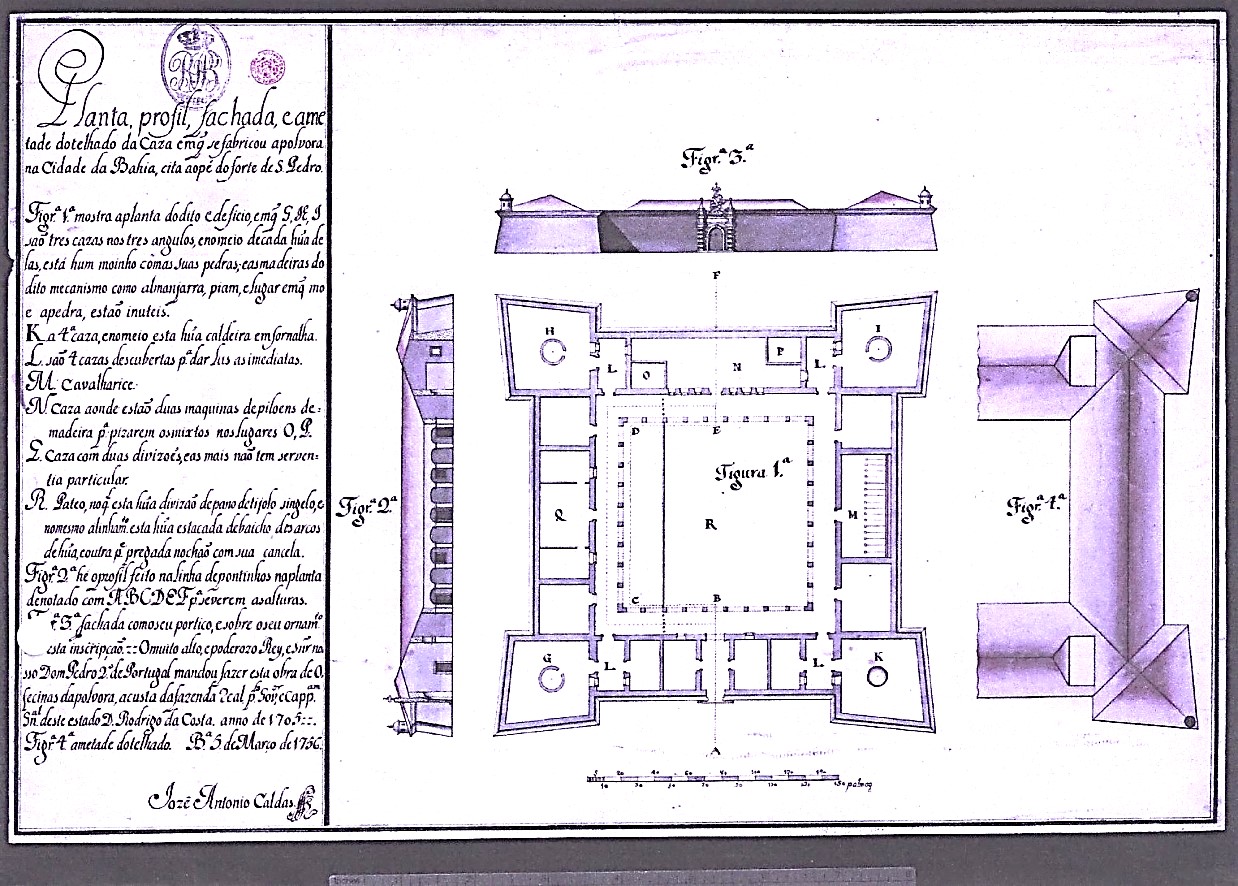 Planta, profil, fachada, e ame
tade do telhado da Caza em q̃ se fabricou apolvora
na Cidade da Bahia, cita aopé do forte de S. Pedro.
Figr.ª 1.ª mostra aplanta dodito edeficio, emq̃ G, H, I
saõ tres cazas nos tres angulos, enomeio decada húa de
las, está hum moinho cõmas suas pedras; easmadeiras do
dito mecanismo como almanjarra, piam, e lugar emq̃ mo
e apedra, estaõ inuteis.
K a 4ª caza, enomeio esta húa caldeira emfornalha.
L. saõ 4 cazas descubertas p.ª dar lus as imediatas.
M. Cavalharice.
N. Caza aonde estaõ duas maquinas depiloens de=
madeira p.ª pizarem osmixtos noslugares O, P.
Q. Caza com duas divizoẽs, eas mais naõ tem serven=
tia particular.
R. Pateo, noq̃ esta húa divizaõ depano detijolo singelo, e
nomesmo alinham.to esta húa estacada debaicho dosarcos
dehúa, eoutra p.te pregada nochaõ com sua cancela.
Figr.ª 2.ª hé oprofil feito nalinha depontinhos naplanta
denotado com A B C D E F p.ª severem asalturas.
3.ª fachada comoseu portico, esobre oseu ornam.to
está inscripçaõ. :: Omuito alto, epoderozo Rey, e Snr' no
sso Dom Pedro 2.º de Portugal mandou fazer esta obra de O.
fecinas dapolvora, acusta dafazenda Real p.lo Gov.or e Capp.am
Gn.al deste estado D. Rodrigo da Costa. anno de 1705 ::.
Figr.ª 4.ª ametade dotelhado. B.ª 5. de Março de 1756.
Jozé Antonio Caldas.
Figr.ª 3.ª
F
H
I
L
O
N
P
L.
D
E
Figura 1.ª
Figr.ª 2.ª
Q
R
M
Figr.ª 4.ª
C
B
G
L.
L.
K
A
5 20 40 60 80 100 120 140
10 30 50 70 90 110 130 150 palmos